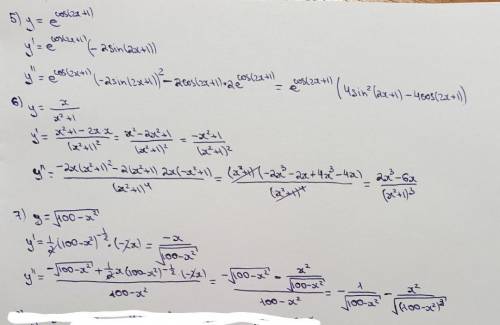 5) y = e^{cos(2x+1)}
y' = e^{cos(2x+1)} (-2sin(2x+1))
y'' = e^{cos(2x+1)} (-2sin(2x+1))^2 - 2cos(2x+1)·2e^{cos(2x+1)} = e^{cos(2x+1)} (4sin^2(2x+1) - 4cos(2x+1))
6) y = \frac{x}{x^2+1}
y' = \frac{x^2+1-2x·x}{(x^2+1)^2} = \frac{x^2-2x^2+1}{(x^2+1)^2} = \frac{-x^2+1}{(x^2+1)^2}
y'' = \frac{-2x(x^2+1)^2-2(x^2+1) 2x(-x^2+1)}{(x^2+1)^4} = \frac{(x^2+1)(-2x^3-2x+4x^3-4x)}{(x^2+1)^4} = \frac{2x^3-6x}{(x^2+1)^3}
7) y = \sqrt{100-x^2}
y' = \frac{1}{2}(100-x^2)^{-\frac{1}{2}}·(-2x) = \frac{-x}{\sqrt{100-x^2}}
y'' = \frac{-\sqrt{100-x^2}+\frac{1}{2}x(100-x^2)^{-\frac{1}{2}}·(-2x)}{100-x^2} = \frac{-\sqrt{100-x^2}-\frac{x^2}{\sqrt{100-x^2}}}{100-x^2} = -\frac{1}{\sqrt{100-x^2}} - \frac{x^2}{\sqrt{(100-x^2)^3}}